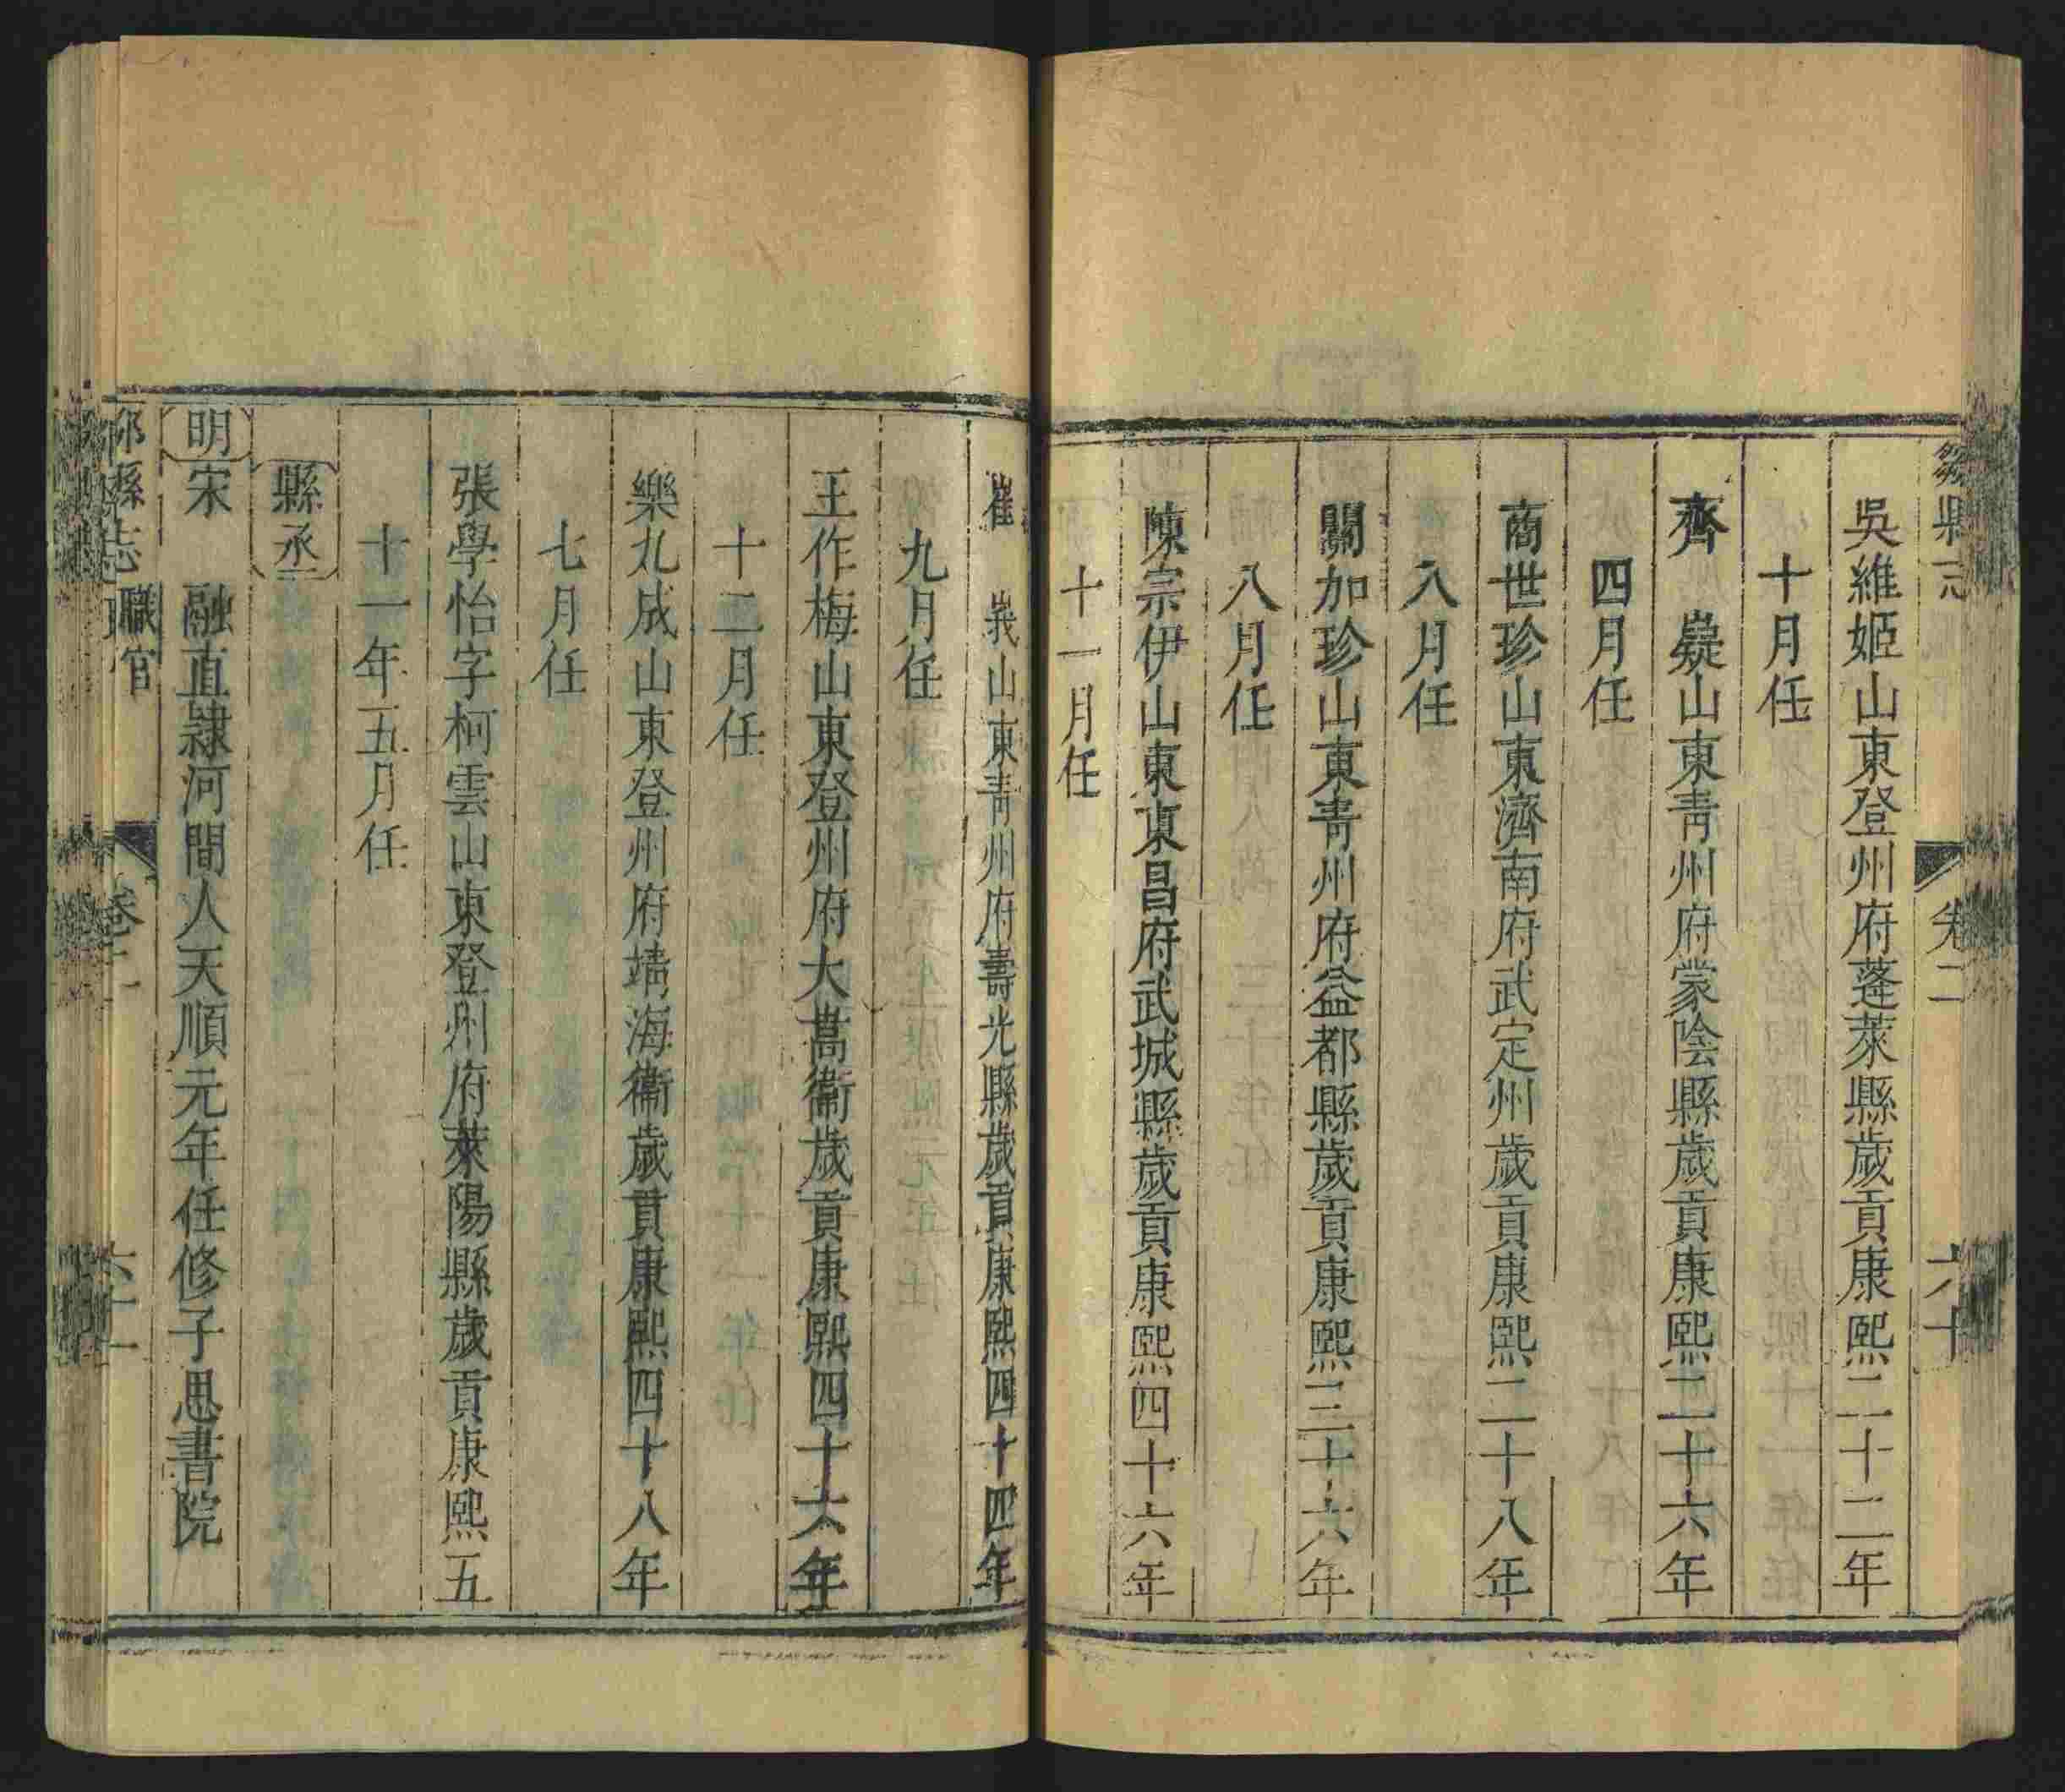 鄒縣志 卷二 六十
吳維姬山東登州府蓬萊縣歲貢康熙二十二年
十月任
齊 嶷山東靑州府蒙陰縣歲貢康熙二十六年
四月任
商世珍山東濟南府武定州歲貢康熙二十八年
八月任
關加珍山東靑州府益都縣歲貢康熙三十六年
八月任
陳宗伊山東東昌府武城縣歲貢康熙四十六年
十一月任
崔 峩山東靑州府壽光縣歲貢康熙四十四年
九月任
王作梅山東登州府大嵩衞歲貢康熙四十六年
十二月任
樂九成山東登州府靖海衞歲貢康熙四十八年
七月任
張學怡字柯雲山東登州府萊陽縣歲貢康熙五
十一年五月任
縣丞
明宋 融直隷河間人天順元年任修子思書院
鄒縣志 職官 卷二 六十一